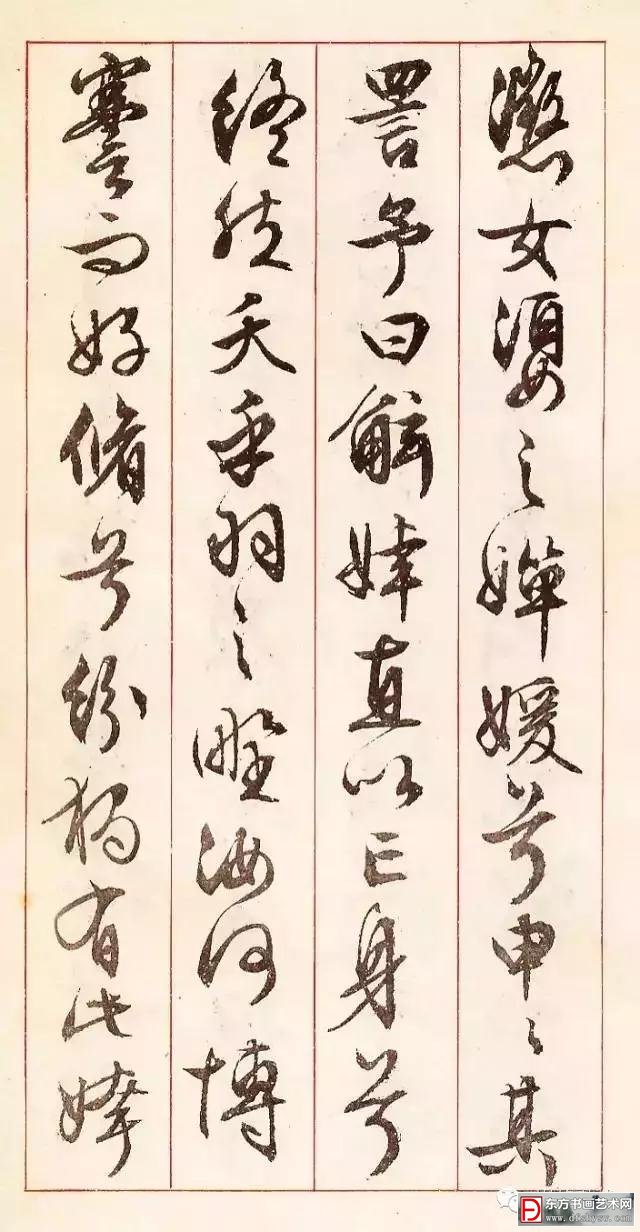 懲女嬃之嬋媛兮申〻其
詈予曰鮌婞直以亡身兮
終然夭乎羽之野汝何博
謇而好脩兮紛獨有此姱
东方书画艺术网